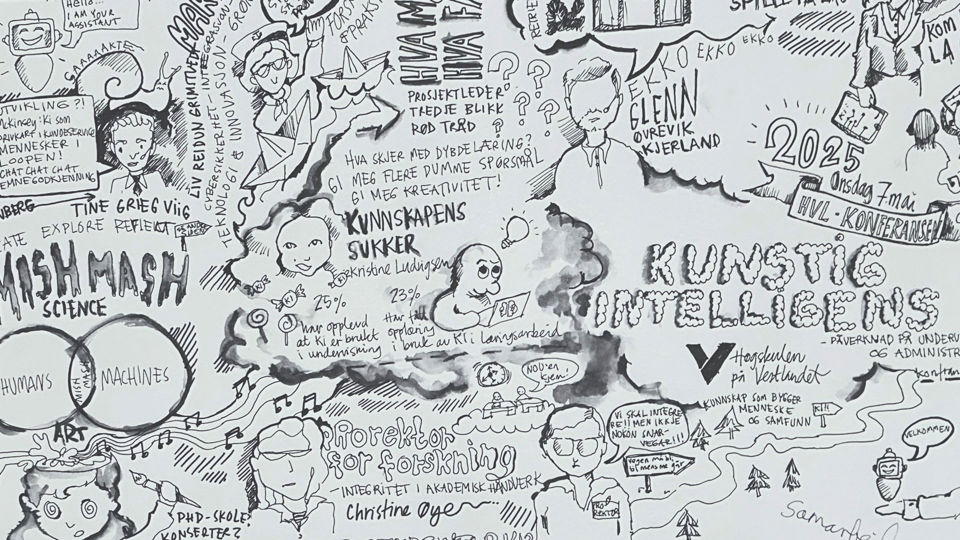 Hello...
I AM YOUR
ASSISTANT
SAAAAKTE
UTVIKLING?!
McKinsey: KI som
I KUNDESERVICE
MENNESKER I
LOOPEN!
CHAT CHAT CHAT
EMNEGODKJENNING
TINE GRIEG VIIG
LIV REIDUN GRIMTVEDT
CYBERSIKKERHET - INTEGRASJON
TEKNOLOGI & INNOVASJON
FORSK
PRAKS
HVA
HVA
PROSJEKTLEDER
TREDJE BLIKK
RØD TRÅD
? ? ? ? ? ? ?
HVA SKJER MED DYBDELÆRING?
GI MEG FLERE DUMME SPØRSMÅL
GI MEG KREATIVITET!
EKKO EKKO EKKO
GLENN
ØVREVIK
KJERLAND
KOM
LA
2025
Onsdag 7. mai
HVL-KONFERANSE
EXPLORE REFLEKT
MISHMASH
SCIENCE
HUMANS
MISH
MASH
MACHINES
ART
KUNNSKAPENS
SUKKER
Kristine Ludvigsen
KI
KI
25%
har opplevd
at KI er brukt
i undervisning
23%
Har fått
opplæring
i bruk av KI i læringsarbeid
KUNSTIG
INTELLIGENS
- PÅVERKNAD PÅ UNDERV
OG ADMINISTR
Høgskulen
på Vestlandet
KUNNSKAP SOM BYGGER
MENNESKE
OG SAMFUNN
NOU'en
kjem!
VI SKAL INTEGRE
RE!! MEN IKKJE
NOKON SNAR-
VEGAR!!!
vegen må bli
til mens me går
PRO
REKTOR
VELKOMMEN
Prorektor
for forskning
- INTEGRITET I AKADEMISK HÅNDVERK
Christine Øye
PHD-SKOLE?
KONSERTER?